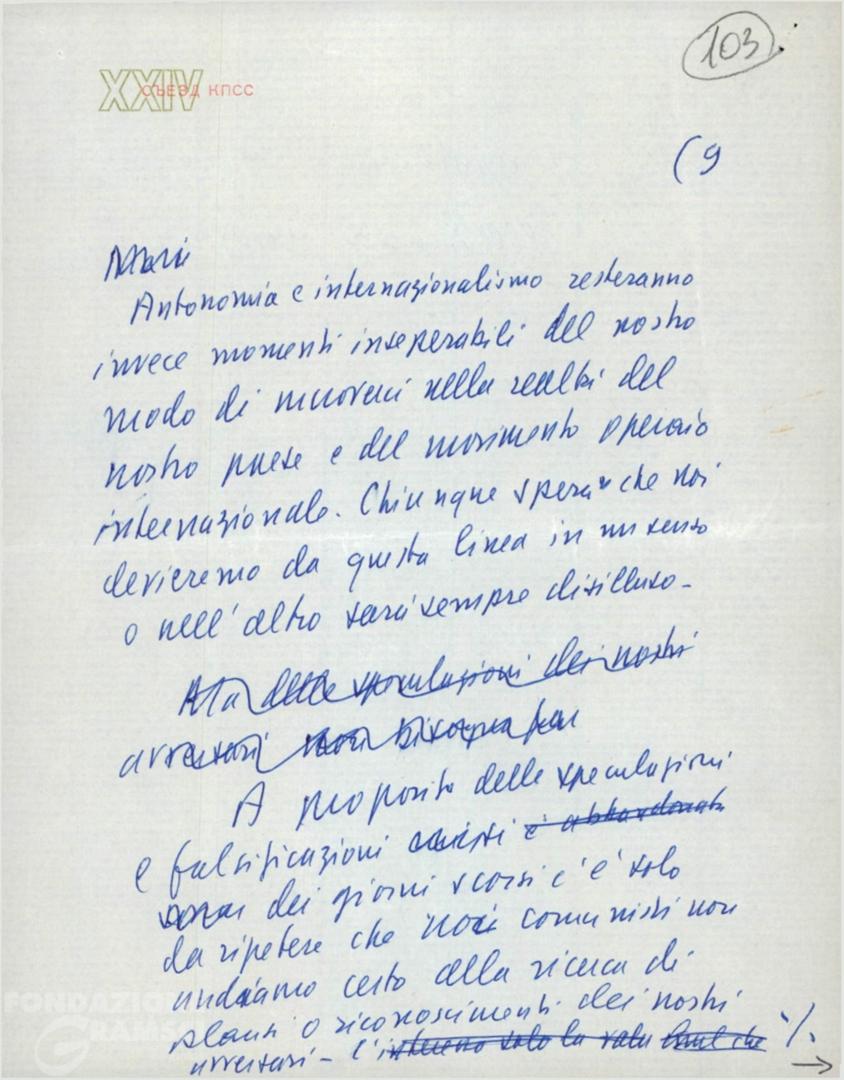 103
XXIV СЪЕЗД КПСС
(9
Autonomia e internazionalismo resteranno
invece momenti inseparabili del nostro
modo di muoverci nella realtà del
nostro paese e del movimento operaio
internazionale. Chiunque spera che noi
devieremo da questa linea in un senso
o nell'altro sarà sempre disilluso -
Ma delle speculazioni dei nostri
avversari non bisogna
A proposito delle speculazioni
e falsificazioni è abbandonata
dei giorni scorsi c'è solo
da ripetere che noi comunisti non
andiamo certo alla ricerca di
plausi o riconoscimenti dei nostri
avversari - solo la
./.
→
FONDAZIONE
GRAMSCI